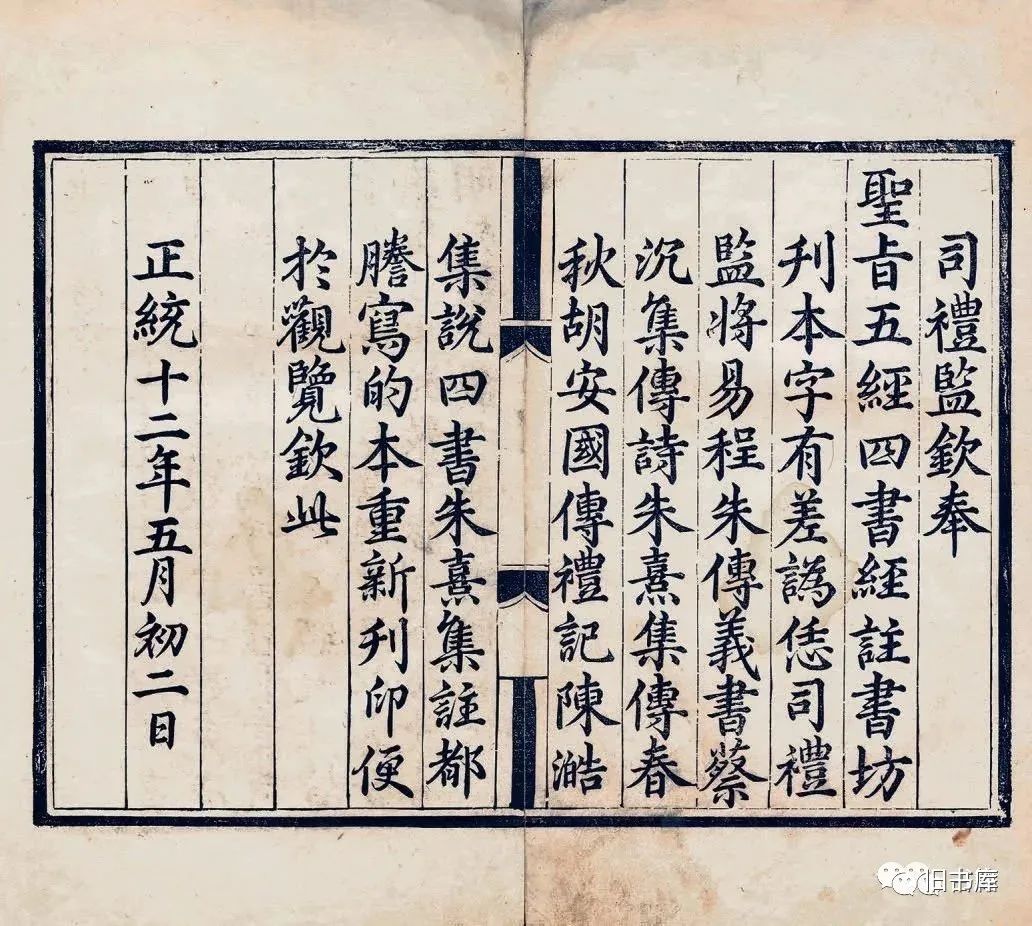 司禮監欽奉
聖旨五經四書經註書坊
刋本字有差譌恁司禮
監將易程朱傳義書蔡
沉集傳詩朱熹集傳春
秋胡安國傳禮記陳澔
集說四書朱熹集註都
謄寫的本重新刋印便
於觀覽欽此
正統十二年五月初二日
旧书库